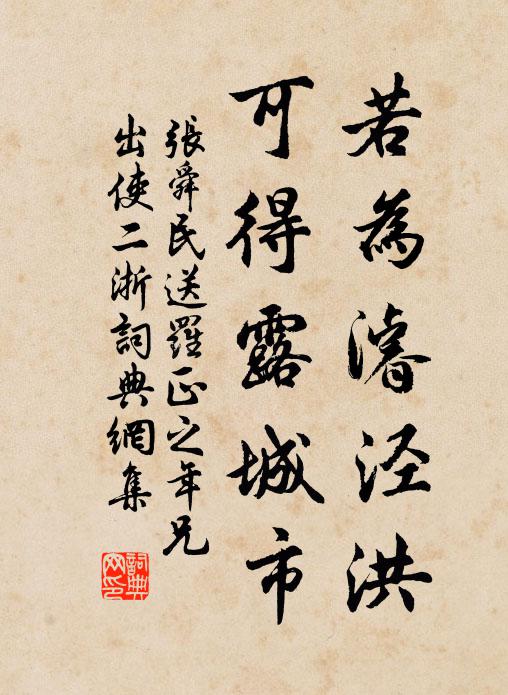 若為濬涇洪
可得露城市
張舜民送羅正之年兄
出使二浙詞典網集
詞典網印